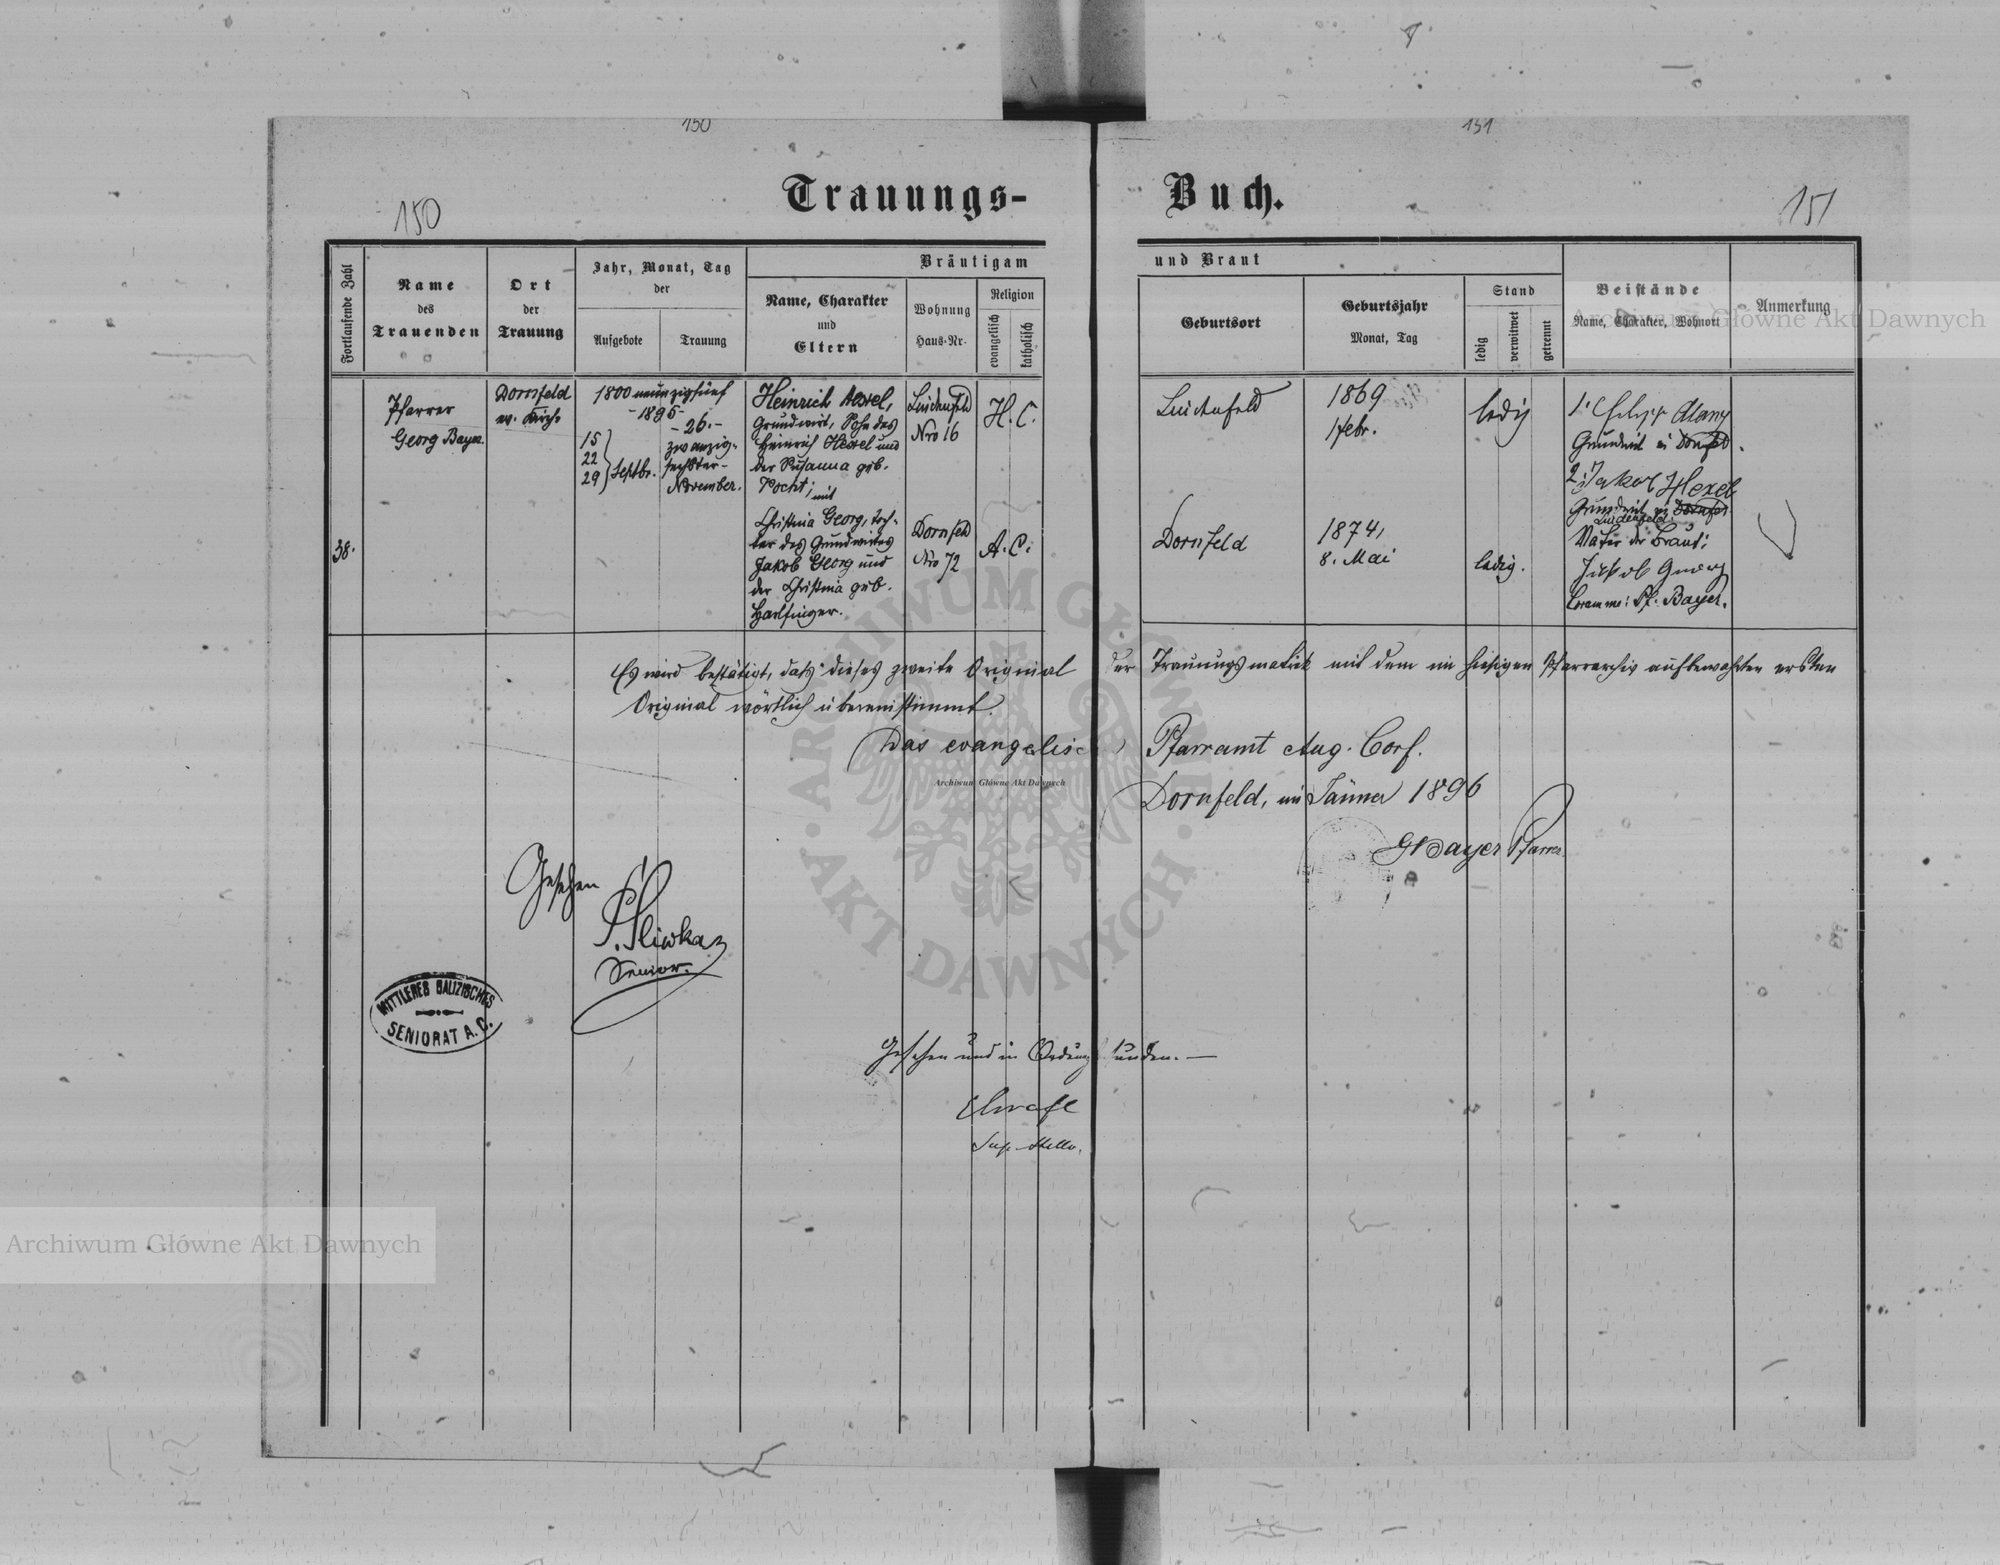 150
151
150
Trauungs-
Buch.
151
Fortlaufende Zahl
Name
des
Trauenden
Ort
der
Trauung
Jahr, Monat, Tag
der
Aufgebote
Trauung
Bräutigam
Name, Charakter
und
Eltern
Wohnung
Haus-Nr.
Religion
evangelisch
katholisch
und Braut
Geburtsort
Geburtsjahr
Monat, Tag
Stand
ledig
verwitwet
getrennt
Beistände
Name, Charakter, Wohnort
Anmerkung
Archiwum Główne Akt Dawnych
38.
Pfarrer
Georg Bayer.
Dornfeld
ev. Kirche
1800 neunzigfünf
- 1895 -
15
22
29
Septbr.
- 26. -
zwanzig-
sechster -
November.
Heinrich Hexel,
Grundwirt, Sohn des
Heinrich Hexel und
der Susanna geb.
mit
Christina Georg, Toch-
ter des Grundwirtes
Jakob Georg und
der Christina geb.
Harlfinger.
Lindenfeld
Nro 16
H. C.
Dornfeld
Nro 72
A. C.
Lindenfeld
1869
1 Febr.
ledig
Dornfeld
1874,
8. Mai
ledig.
1. Philipp
Grundwirt in Dornfeld.
2. Jakob Hexel
Grundwirt in Dornfeld
Lindenfeld
Vater der Braut:
Jakob Georg
Coram me: Pf. Bayer.
Es wird bestätigt, daß dieses zweite Original der Trauungsmatrik mit dem im hiesigen Pfarrarchiv aufbewahrten ersten
Original wörtlich übereinstimmt.
Das evangelische Pfarramt Aug. Conf.
Archiwum Główne Akt Dawnych
Dornfeld, im Jänner 1896
GBayer Pfarrer
Gesehen
Śliwka
Senior.
MITTLERES GALIZISCHES
SENIORAT A. C.
ARCHIWUM GŁÓWNE
AKT DAWNYCH
Gesehen und in Ordnung befunden. —
Sup. Stellv.
Archiwum Główne Akt Dawnych